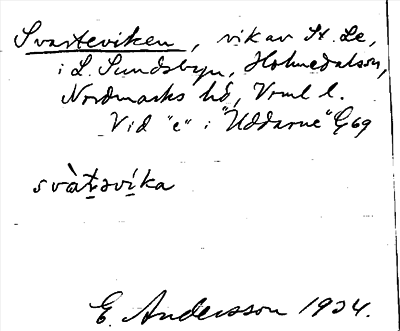 Svarteviken, vik av St. Le,
i L. Sundsbyn, Holmedalson,
Nordmarks hd, Vrml l.
Vid "e" i "Uddarne" G 69
svàt̠əvi̠ka
E. Andersson 1924.